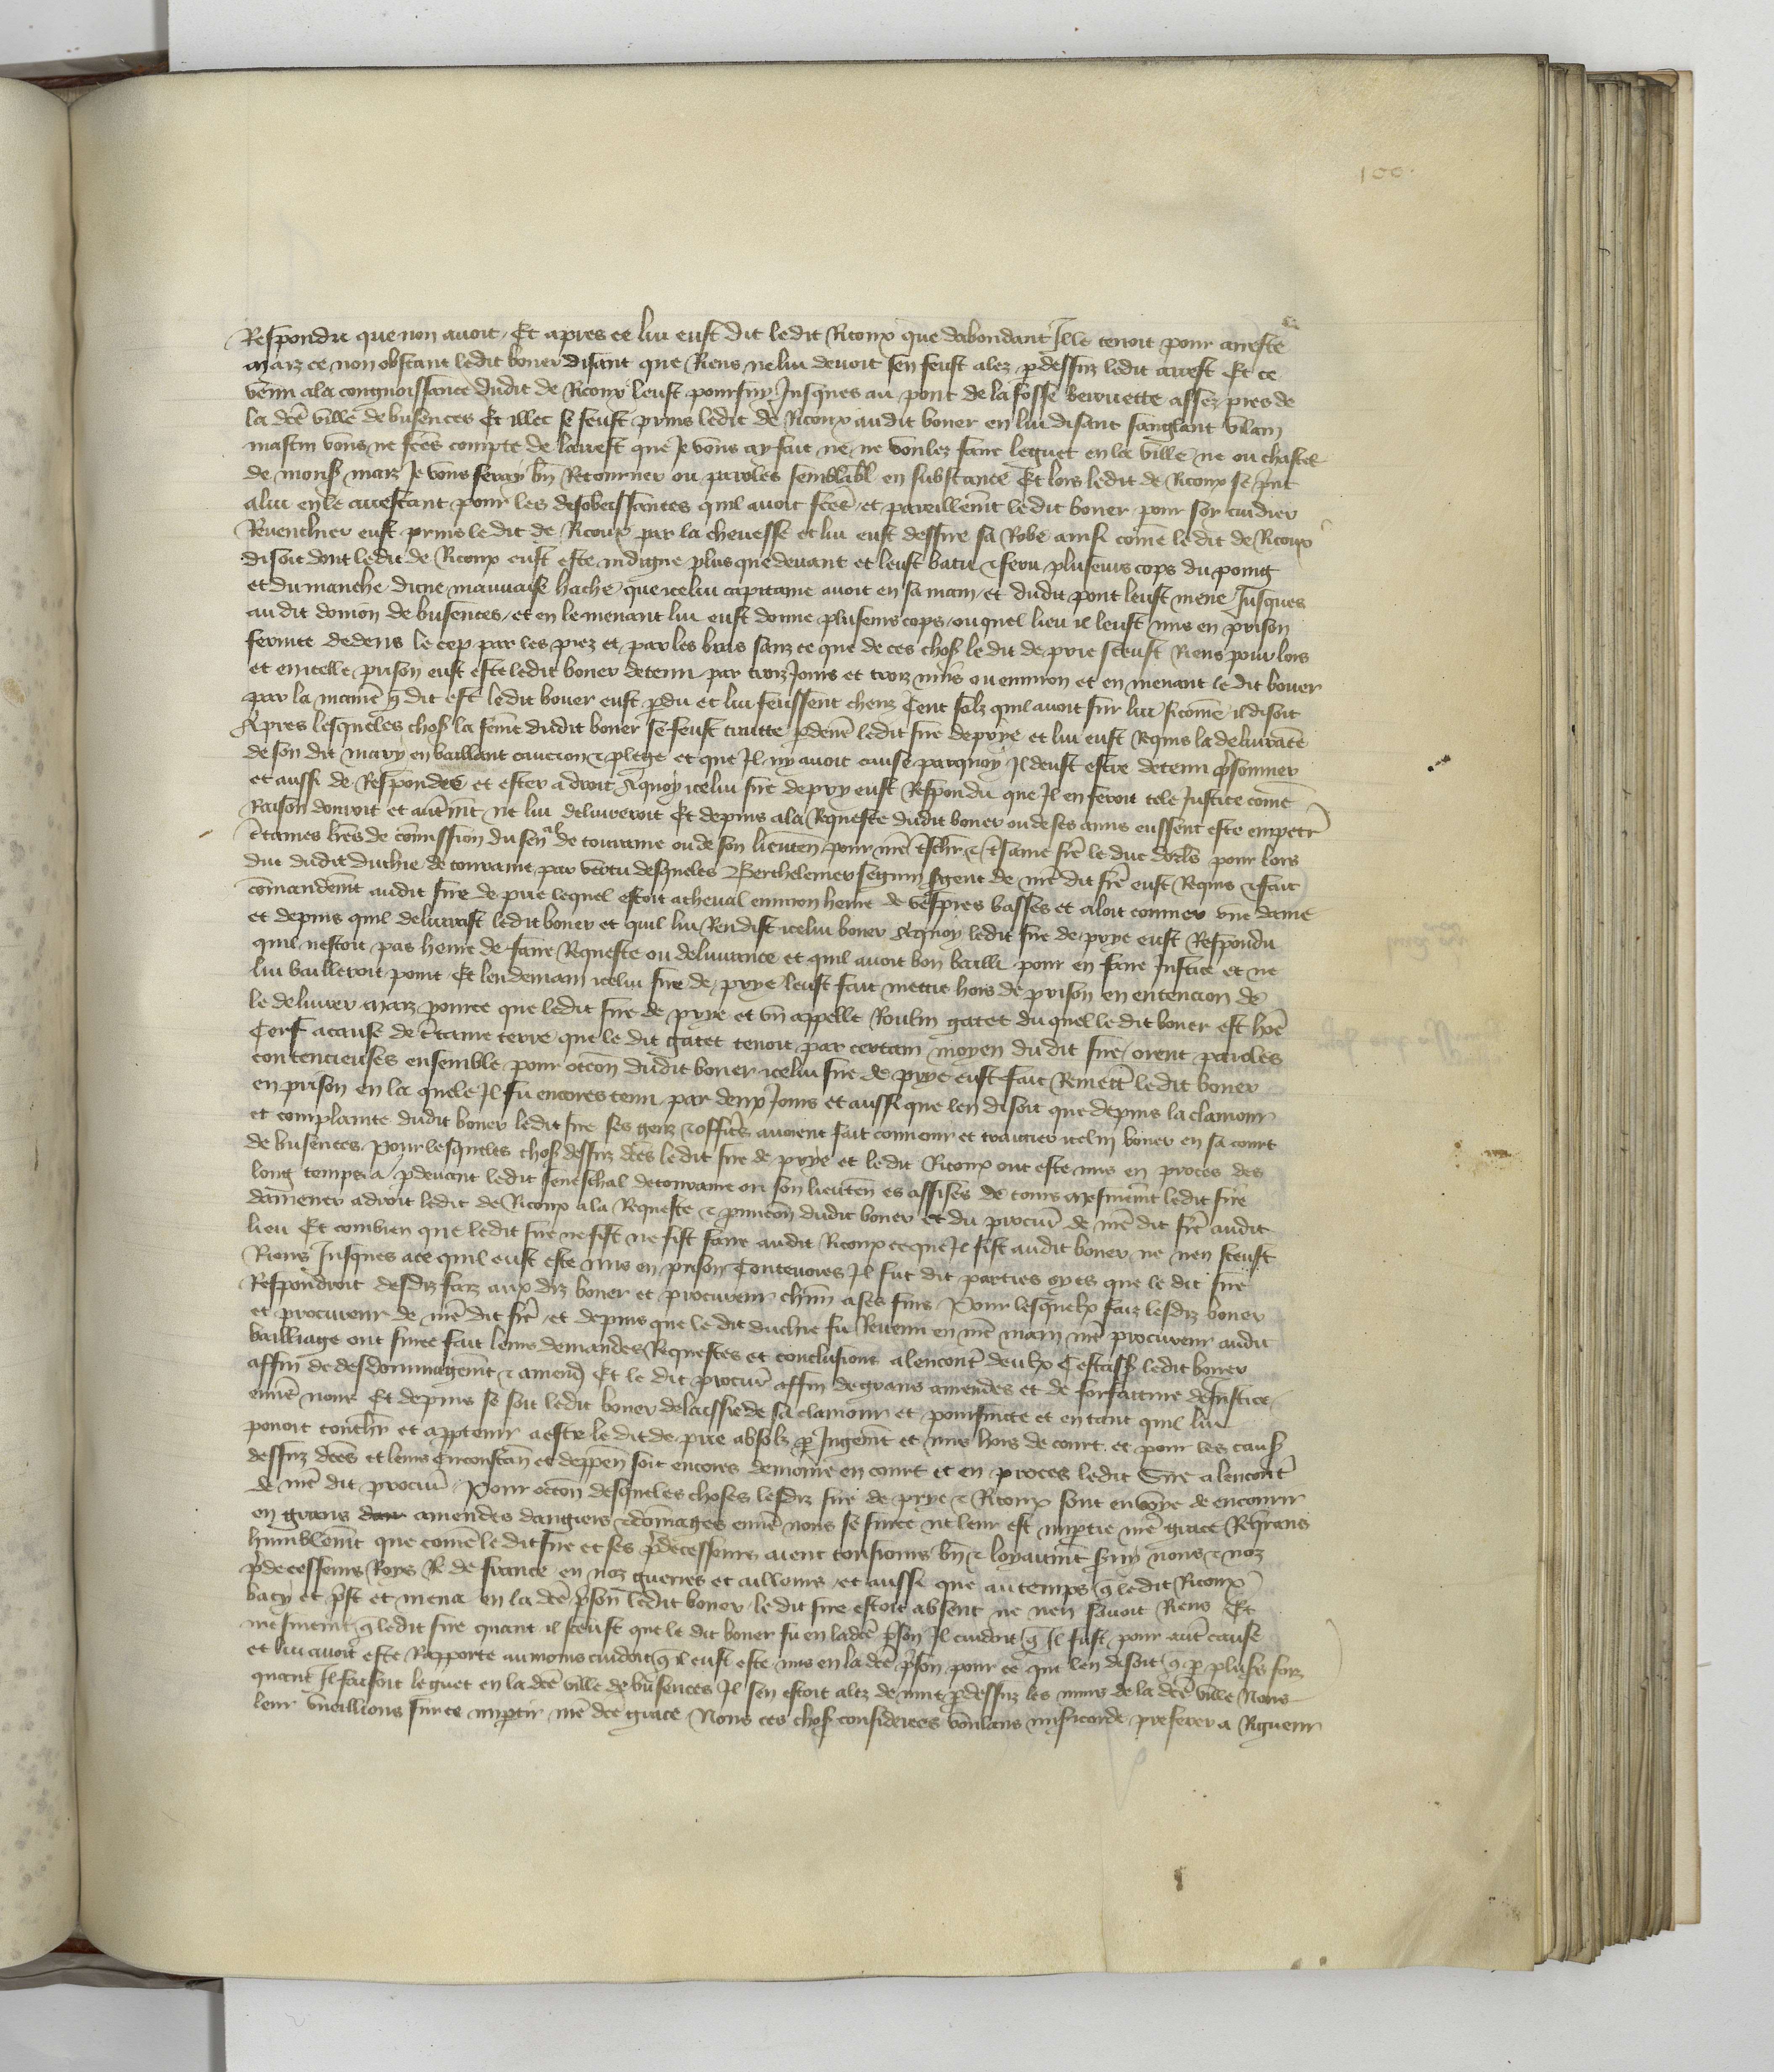 100.
Respondu que non avoit. Et apres ce lui eust dit ledit Ricoux que dabondant Il le tenoit pour arreste
Maiz ce non obstant ledit boner disant que Riens ne lui devoit sen feust alez p dessuz ledit arrest Et ce
venu ala congnoissance dudit de Ricoux leust poursuy Jusques au pont de la fosse beruette assez pres de
la dce ville de busences Et illec se feust prins ledit de Ricoux audit boner en lui disant sanglant vilain
mastin vous ne fces compte de larrest que Je vous ay fait ne ne voulez faire leguet en la ville ne ou chastel
de mons maiz Je vous feray bn Retourner ou paroles semblabl en substance Et lors ledit de Ricoux se print
alui en le arrestant pour les desobeissances quil avoit fces et pareillemt ledit boner pour soy cuidier
Revenchier eust prins ledit de Ricoux par la chevesse et lui eust dessire sa Robe ainsi come le dit de Ricoux
disoit dont ledit de Ricoux eust este indigne plus que devant et leust batu & feru pluseurs cops du poing
et du manche dune mauvaise hache que icelui capitaine avoit en sa main et dudit pont leust mene Jusques
au dit donion de busences et en le menant lui eust donne pluseurs cops ou quel lieu il leust mis en prison
fermee dedens le cep par les piez et par les bras sanz ce que de ces chos le dit de prie sceust Riens pour lors
et en icelle prison eust este ledit boner detenu par troiz Jours et troiz nuis ou environ et en menant le dit boner
par la maniere q dit est ledit boner eust pdu et lui feussent cheuz Cent solz quil avoit sur lui sicome il disoit
Apres lesqueles chos la feme dudit boner se feust traitte p devers ledit sire de prye et lui eust Requis la delivrance
de son dit mary en baillant caucion & plege et que Il ny avoit cause parquoy Il deust estre detenu prisonnier
et aussi de Respondre et ester a droit Aquoy icelui sire de pry eust Respondu que Il en feroit tele Justice come
Raison donroit et autrmt ne lui delivreroit Et depuis ala Requeste dudit boner ou de ses amis eussent este empetr
ctaines lres de comission du senal de touraine ou de son lieuten pour nre tschr & tsame fre le duc dorls pour lors
duc dudit duchie de touraine par vertu desqueles Berthelemer seguin sgent de nre dit fre eust Requis & fait
comandemt audit sire de prie lequel estoit acheval environ heure de vespres basses et aloit convier une dame
et depuis quil delivrast ledit boner et quil lui Rendist icelui boner Aquoy ledit sire de prye eust Respondu
quil nestoit pas heure de faire Requeste ou delivrance et quil avoit bon bailli pour en faire Justice et ne
lui bailleroit point Et lendemain icelui sire de prye leust fait mettre hors de prison en entencion de
le delivrer Maiz pource que ledit sire de prye et un appelle Roulin gatet du quel le dit boner est home
Cerf acause de ctaine terre que le dit gatet tenoit par certain moyen du dit sire orent paroles
contencieuses ensemble pour occon dudit boner icelui sire de prye eust fait Remettr ledit boner
en prison en la quele Il fu encores tenu par deux Jours et aussi que len disoit que depuis la clamour
et complainte dudit boner ledit sire ses gens & officrs avoient fait convenir et traittier icelui boner en sa court
de busences Pour lesqueles chos dessuz dces ledit sire de prye et ledit Ricoux ont este mis en proces des
long temps a p devant ledit seneschal de touraine ou son lieuten es assises de tours mesmemt ledit sire
damener adroit ledit de Ricoux ala Requeste & pmucon dudit boner et du procur de nre dit fre audit
lieu Et combien que ledit sire ne fist ne fist faire audit Ricoux ce que Il fist audit boner ne nen sceust
Riens Jusques ace quil eust este mis en prison Toutevoies Il fut dit parties oyes que le dit sire
Respondroit desdiz faiz aux diz boner et procureur chun ases fins Pour lesquelx faiz lesdiz boner
et procureur de nre dit fre et depuis que le dit duchie fu Revenu en nre main nre procureur audit
bailliage ont sur ce fait leurs demandes Requestes et conclusions alencontr deulx Cestass ledit boner
affin de desdommagemt & amend Et le dit procur affin de grans amendes et de forfaiture de Justice
envrs nous Et depuis se soit ledit boner delaissie de sa clamour et poursuite et en tant quil lui
povoit touchr et apptenir aestre le dit de prie absolz p Jugemt et mis hors de court et pour les caus
dessuz dces et leurs circonstan et deppen soit encores demoure en court et en proces ledit Sire alencontr
de nre dit procur Pour occon desqueles choses lesdiz sire de prye & Ricoux sont en voye de encourir
en grans amendes dangiers & domages envrs nous se sur ce ne leur est imptie nre grace Reqrans
humblemt que come le dit sire et ses predecesseurs aient tousiours bn & loyaumt suy nous & noz
predecesseurs Roys R de france en noz guerres et ailleurs et aussi que au temps q ledit Ricoux
baty et prist et mena en la dce prison ledit boner le dit sire estoit absent ne nen savoit Riens Et
mesmemt q ledit sire quant il sceust que le dit boner fu en ladce prison Il cuidoit q Il fust pour autr cause
et lui avoit este Rapporte aumoins cuidoit q il eust este mis en la dce prison pour ce que len disoit q p plusrs foiz
quant Il faisoit leguet en la dce ville de busences Il sen estoit alez de nuit p dessuz les murs de la dce ville Nous
leur vueillions sur ce imptir nre dce grace Nous ces chos considerees voulans misericorde preferer a Rigueur